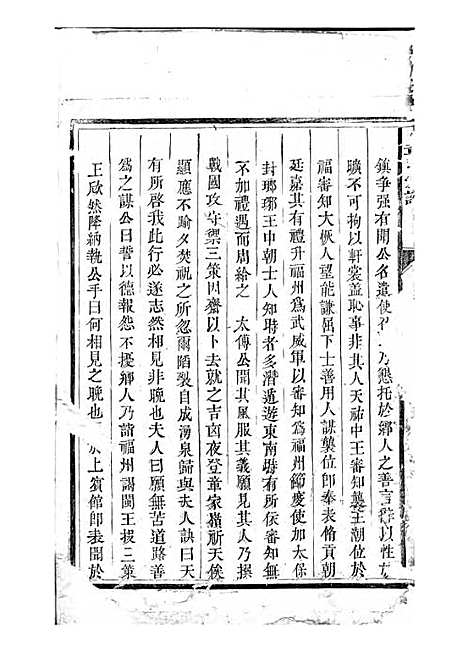 鎮争强有聞公名遣使
乃懇托於鄉人之善言
以性
曠不可拘以軒裳葢恥事非其人天祐中王審知襲王潮位於
福審知大恢人望能謙属下士善用人謀襲位即奉表脩貢朝
廷嘉其有禮升福州爲武威軍以審知爲福州節度使加太保
封瑯琊王中朝士人知時者多潛遁遊東南時有所依審知無
不加禮遇而周給之 太傅公聞其風服其義願見其人乃撰
戰國攻守禦三策因齋以卜去就之吉囪夜登童家嶺祈天俟
顯應不踰夕焚祝之所忽爾陷裂自成湧泉歸與夫人訣曰天
有所啓我此行必遂志然相見非晚也夫人曰願無苦道路善
爲之謀公曰誓以德報怨不擾鄉人乃詣福州謁閩王拔三策
王欣然降納執公手曰何相見之晚也
於上賓館即表聞於